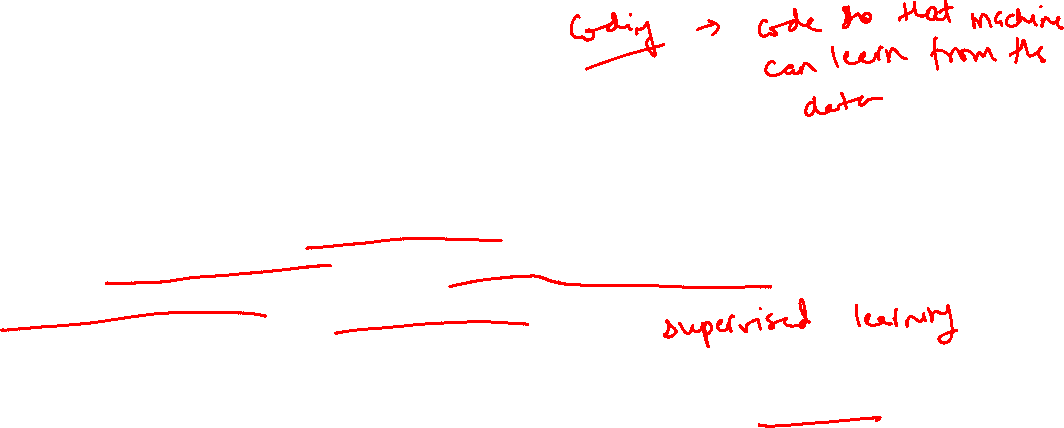 Coding → code so that machine
can learn from the
data
supervised learning